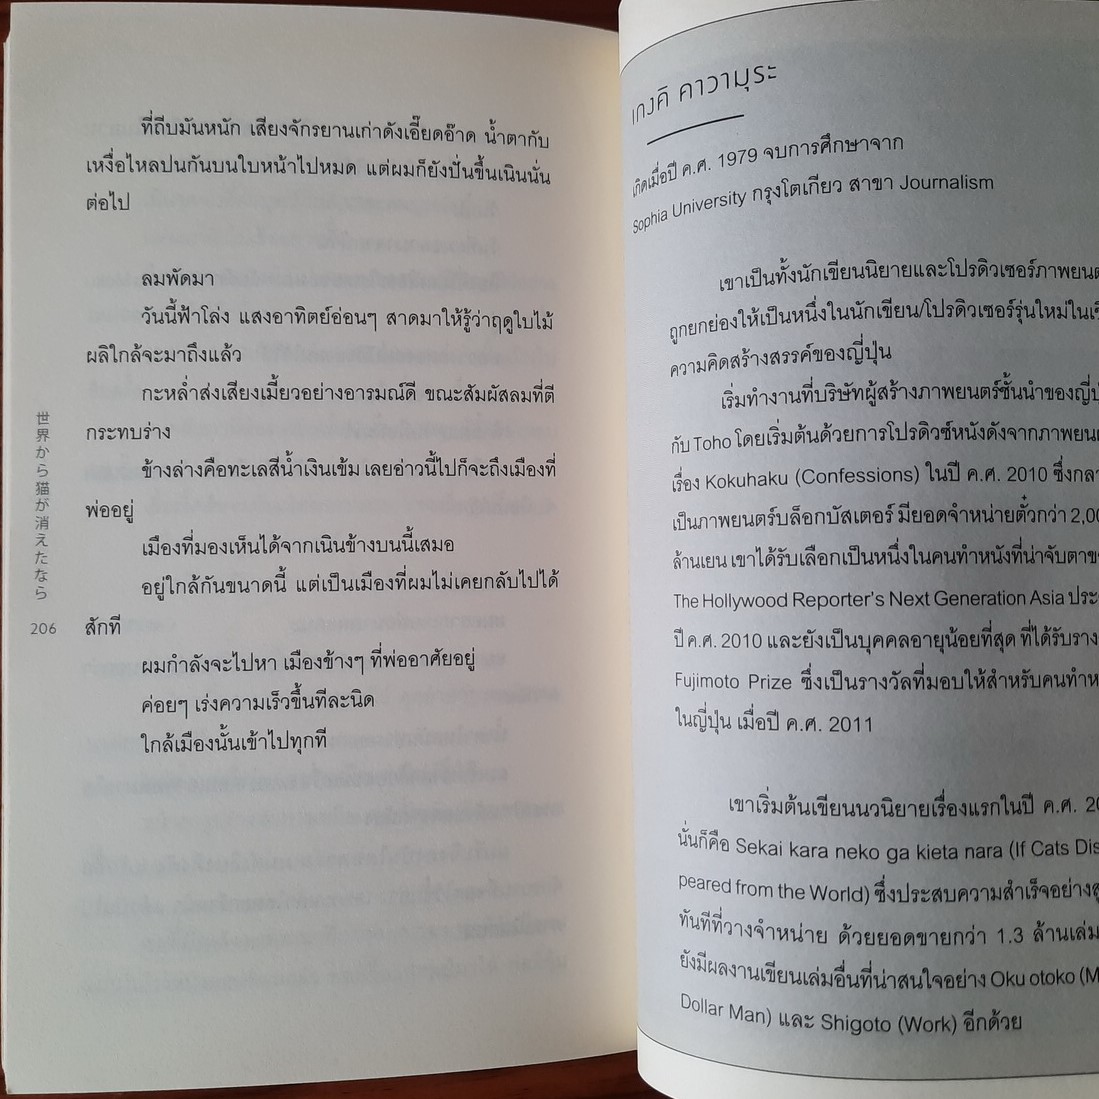 ที่ถีบมันหนัก เสียงจักรยานเก่าดังเอี๊ยดอ๊าด น้ำตากับ
เหงื่อไหลปนกันบนใบหน้าไปหมด แต่ผมก็ยังปั่นขึ้นเนินนั่น
ต่อไป
ลมพัดมา
วันนี้ฟ้าโล่ง แสงอาทิตย์อ่อนๆ สาดมาให้รู้ว่าฤดูใบไม้
ผลิใกล้จะมาถึงแล้ว
กะหล่ำส่งเสียงเมี้ยวอย่างอารมณ์ดี ขณะสัมผัสลมที่ตี
กระทบร่าง
ข้างล่างคือทะเลสีน้ำเงินเข้ม เลยอ่าวนี้ไปก็จะถึงเมืองที่
พ่ออยู่
เมืองที่มองเห็นได้จากเนินข้างบนนี้เสมอ
อยู่ใกล้กันขนาดนี้ แต่เป็นเมืองที่ผมไม่เคยกลับไปได้
สักที
ผมกำลังจะไปหา เมืองข้างๆ ที่พ่ออาศัยอยู่
ค่อยๆ เร่งความเร็วขึ้นทีละนิด
ใกล้เมืองนั้นเข้าไปทุกที
世界から猫が消えたなら
206
เกงคิ คาวามุระ
เกิดเมื่อปี ค.ศ. 1979 จบการศึกษาจาก
Sophia University กรุงโตเกียว สาขา Journalism
เขาเป็นทั้งนักเขียนนิยายและโปรดิวเซอร์ภาพยน
ถูกยกย่องให้เป็นหนึ่งในนักเขียน/โปรดิวเซอร์รุ่นใหม่ใน
ความคิดสร้างสรรค์ของญี่ปุ่น
เริ่มทำงานที่บริษัทผู้สร้างภาพยนตร์ชั้นนำของ
กับ Toho โดยเริ่มต้นด้วยการโปรดิวซ์หนังดังจากภาพยน
เรื่อง Kokuhaku (Confessions) ในปี ค.ศ. 2010 ซึ่ง
เป็นภาพยนตร์บล็อกบัสเตอร์ มียอดจำหน่ายตั๋วกว่า
ล้านเยน เขาได้รับเลือกเป็นหนึ่งในคนทำหนังที่น่าจับตา
The Hollywood Reporter's Next Generation Asia ประ
ปี ค.ศ. 2010 และยังเป็นบุคคลอายุน้อยที่สุด ที่ได้รับราง
Fujimoto Prize ซึ่งเป็นรางวัลที่มอบให้สำหรับคนทำ
ในญี่ปุ่น เมื่อปี ค.ศ. 2011
เขาเริ่มต้นเขียนนวนิยายเรื่องแรกในปี ค.ศ.
นั่นก็คือ Sekai kara neko ga kieta nara (If Cats Dis
peared from the World) ซึ่งประสบความสำเร็จอย่าง
ทันทีที่วางจำหน่าย ด้วยยอดขายกว่า 1.3 ล้านเล่ม
ยังมีผลงานเขียนเล่มอื่นที่น่าสนใจอย่าง Oku otoko (M
Dollar Man) และ Shigoto (Work) อีกด้วย